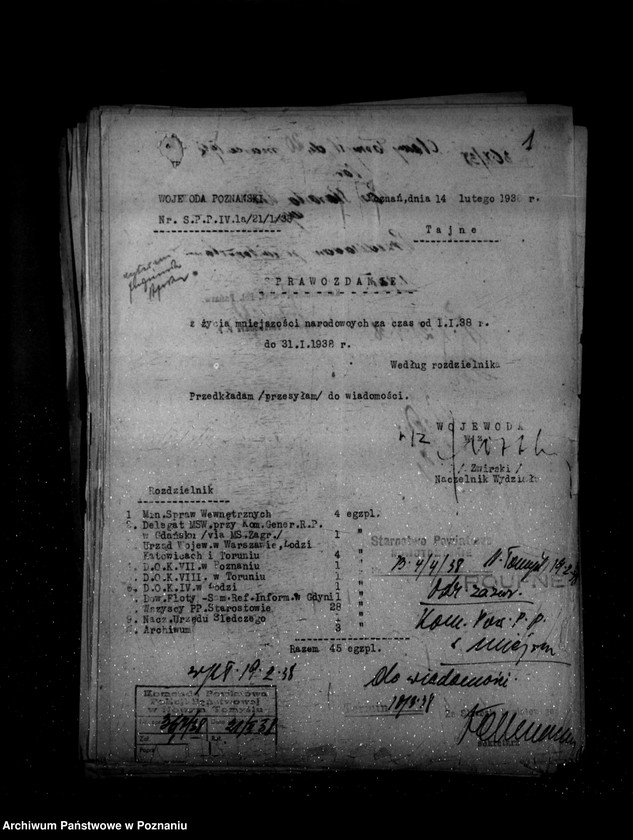 1
WOJEWODA POZNAŃSKI
Poznań, dnia 14 lutego 1938 r.
Nr. S.P.P.IV.1a/21/1/38
Tajne
SPRAWOZDANIE
z życia mniejszości narodowych za czas od 1.I.38 r.
do 31.I.1938 r.
Według rozdzielnika
Przedkładam /przesyłam/ do wiadomości.
WOJEWODA
/ Zwirski /
Naczelnik Wydziału
Rozdzielnik
1 Min.Spraw Wewnętrznych 4 egzpl.
2. Delegat MSW.przy Kom.Gener.R.P.
w Gdańsku /via MS.Zagr./ 1 "
Urząd Wojew.w Warszawie,Łodzi
Katowicach i Toruniu 4 "
D.O.K.VII.w Poznaniu 1 "
D.O.K.VIII.w Toruniu 1 "
D.O.K.IV.w Łodzi 1 "
Dow.Floty-Sam.Ref.Inform.w Gdyni 1 "
Wszyscy PP.Starostowie 28 "
Nacz.Urzędu Śledczego 1 "
Archiwum 3 "
Razem 45 egzpl.
Starostwo Powiatowe
B. 4/4/38 N. Tomyśl 19.2.38
POUFNE
Kom. Pow. P.P.
w miejscu
19.2.38
Do wiadomości.
Komenda Powiatowa
Policji Państwowej
w Nowym Tomyślu
367/38
Archiwum Państwowe w Poznaniu